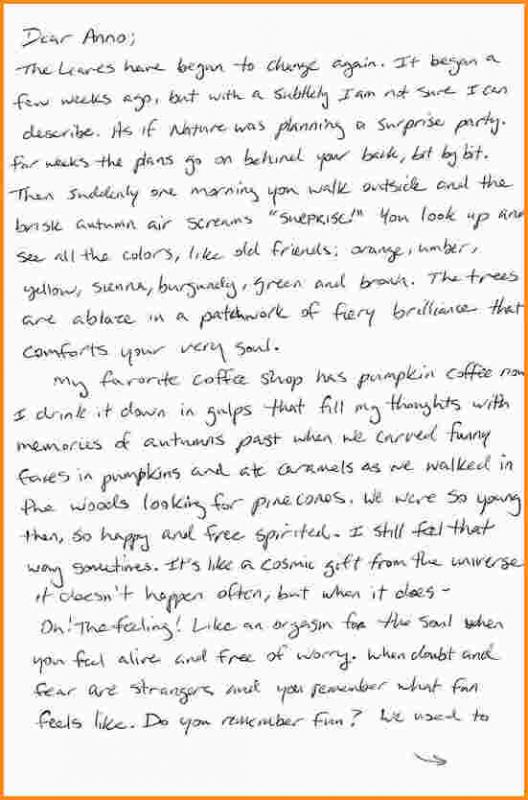 Dear Anno;
The Leaves have began to change again. It began a
few weeks ago, but with a subtlely I am not sure I can
describe. As if Nature was planning a surprise party.
For weeks the plans go on behind your back, bit by bit.
Then suddenly one morning you walk outside and the
brisk autumn air screams "SURPRISE!" You look up and
see all the colors, like old friends; orange, umber,
yellow, sienna, burgundy, green and brown. The trees
are ablaze in a patchwork of fiery brilliance that
comforts your very soul.
My favorite coffee shop has pumpkin coffee now
I drink it down in gulps that fill my thoughts with
memories of autumns past when we carved funny
faces in pumpkins and ate caramels as we walked in
the woods looking for pinecones. We were so young
then, so happy and free spirited. I still feel that
way sometimes. It's like a cosmic gift from the universe
it doesn't happen often, but when it does -
Oh! The feeling! Like an orgasm for the soul when
you feel alive and free of worry. When doubt and
fear are strangers and you remember what fun
feels like. Do you remember fun? We used to